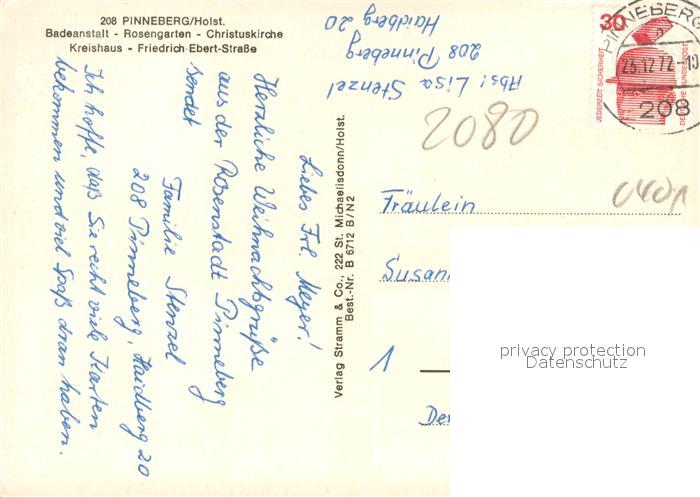 208 PINNEBERG/Holst.
Badeanstalt - Rosengarten - Christuskirche
Kreishaus - Friedrich-Ebert-Straße
Liebes Frl. Meyer!
Herzliche Weihnachtsgrüße
aus der Rosenstadt Pinneberg
sendet
Familie Stenzel
208 Pinneberg, Haidberg 20
Ich hoffe, daß Sie recht viele Karten
bekommen und viel Spaß dran haben.
Verlag Stramm & Co., 222 St. Michaelisdonn/Holst.
Best.-Nr. B 6712 B/N2
Abs: Lisa Stenzel
208 Pinneberg
Haidberg 20
30
JEDERZEIT SICHERHEIT
DEUTSCHE BUNDESPOST
PINNEBERG
23.12.72-10
208
2080
Fräulein
1
privacy protection
Datenschutz